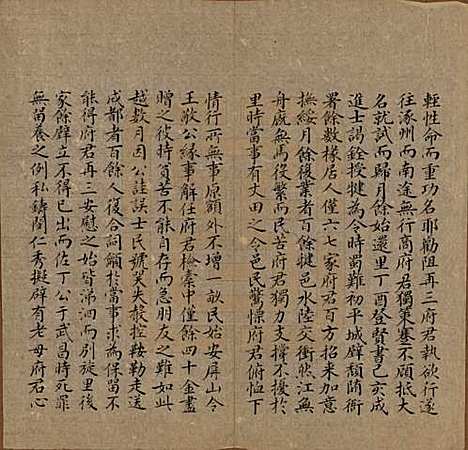 輕性命而重功名耶勸阻再三府君執欲行遂
往涿州而南途無行商府君獨策蹇不顧抵大
名就試而歸月餘始還里丁酉登賢書己亥成
進士謁銓授犍為令時蜀難初平城廨頹隳衙
署餘數椽居人僅六七家府君百方招来加意
撫綏月餘復業者百餘犍邑水陸交衝然江無
舟廐無馬役繁而民苦府君獨力支撐不擾於
里時當事有丈田之令邑民驚懼府君俯恤下
情行所無事原額外不增一畝民始安屏山令
王敬公緣事解任府君檢橐中僅餘四十金盡
贈之彼時貧苦不能自存而急朋友之難如此
越数月因公詿誤士民號哭失聲控鞍勒走送
成都者百餘人復合詞籲於當事求為保留不
能得府君再三安慰之始皆涕泗而別旋里後
家餘壁立不得已出而佐丁公于武昌時死罪
無留養之例私鑄閻仁秀擬辟有老母府君心